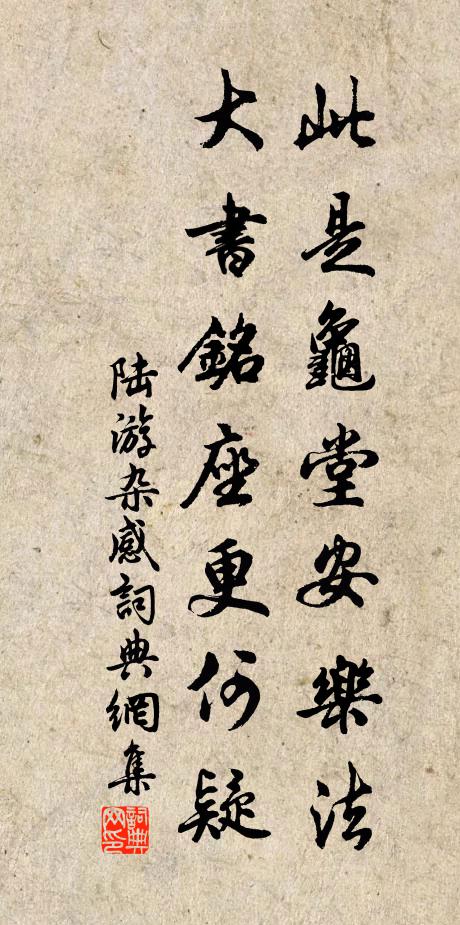 此是龜堂安樂法
大書銘座更何疑
陆游杂感詞典網集
詞典网印